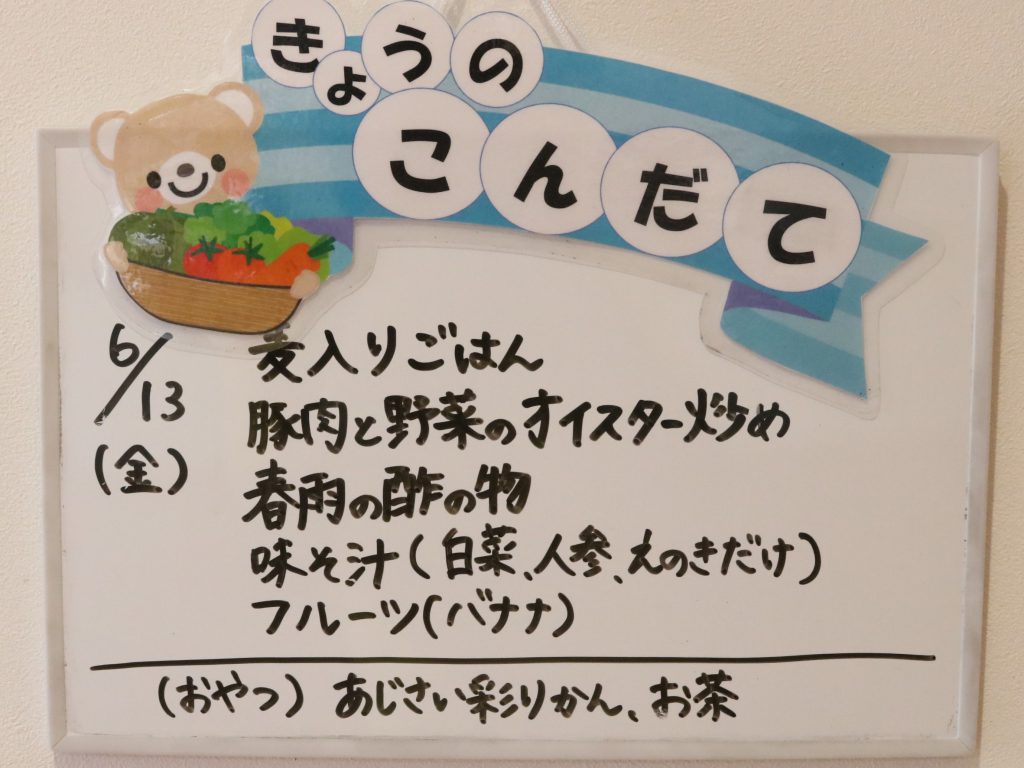 きょうの
こんだて
6/13
(金)
麦入りごはん
豚肉と野菜のオイスター炒め
春雨の酢の物
味そ汁(白菜、人参、えのきだけ)
フルーツ(バナナ)
(おやつ) あじさい彩りかん、お茶